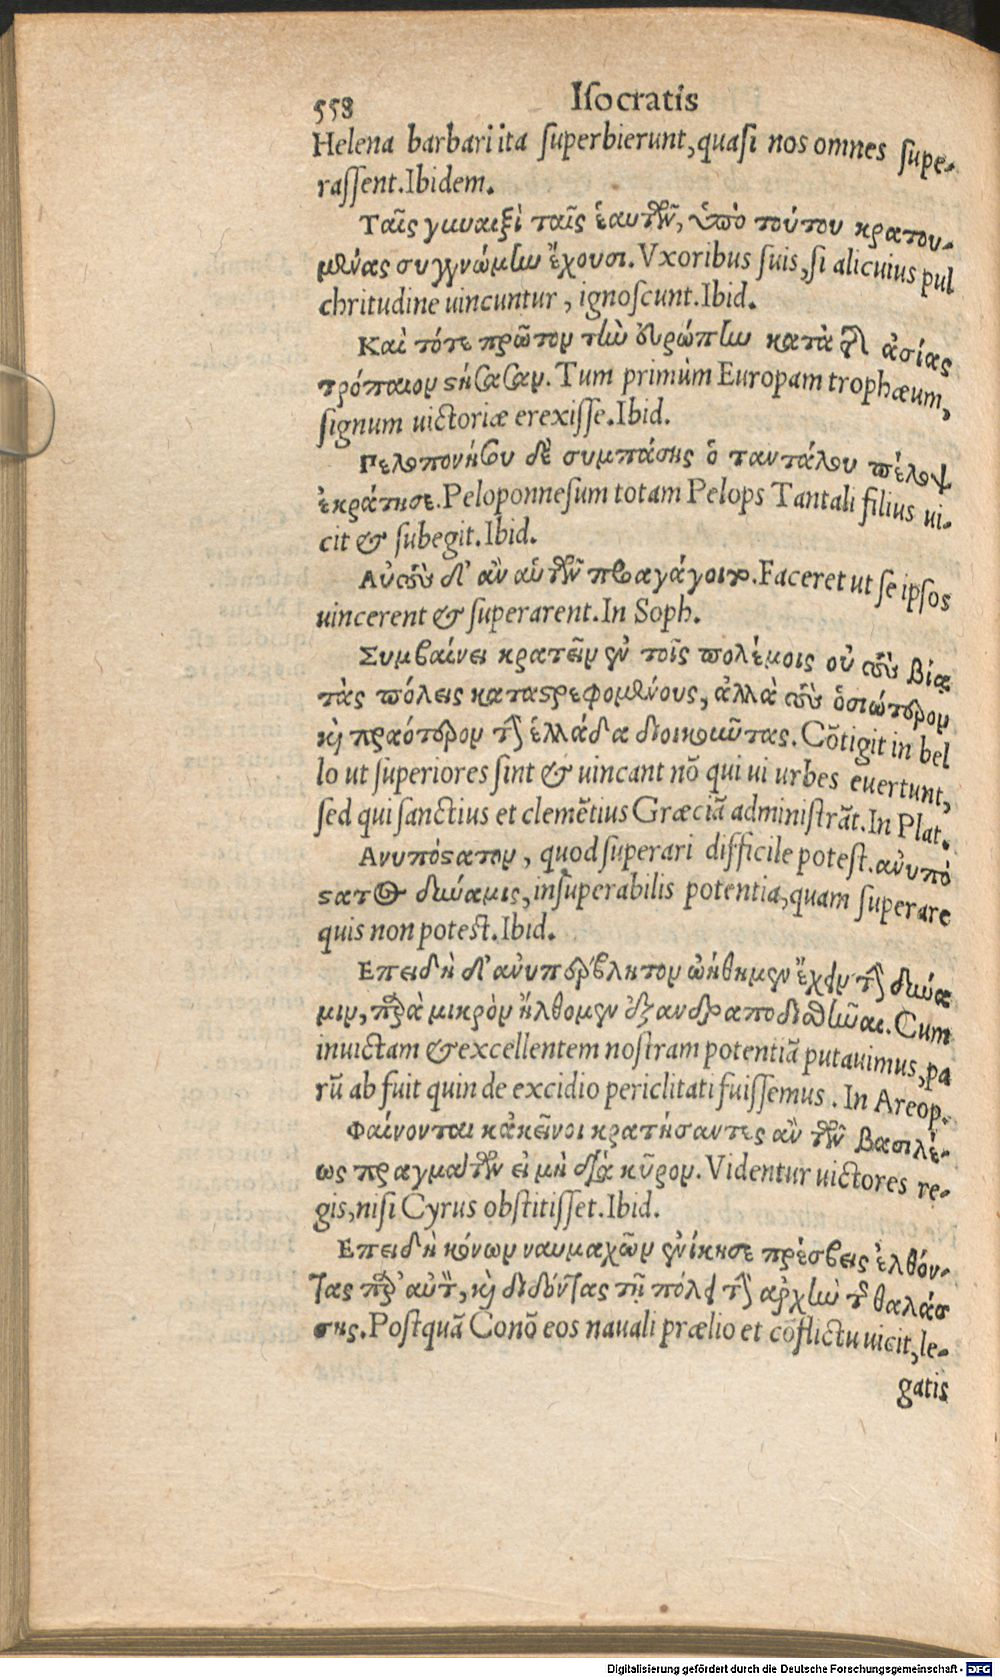 558 Isocratis
Helena barbari ita superbierunt, quasi nos omnes supe-
rassent. Ibidem.
Ταῖς γυναιξὶ ταῖς ἑαυτῶν, ὑπὸ τούτου κρατου-
μένας συγγνώμην ἔχουσι. Vxoribus suis, si alicuius pul
chritudine uincuntur, ignoscunt. Ibid.
Καὶ τότε πρῶτον τὴν εὐρώπην κατὰ τῆς ἀσίας
τρόπαιον στήσασαν. Tum primùm Europam trophæum,
signum uictoriæ erexisse. Ibid.
Πελοπονήσου δὲ συμπάσης ὁ ταντάλου πέλοψ
ἐκράτησε. Peloponnesum totam Pelops Tantali filius ui-
cit & subegit. Ibid.
Αὐτοὺς δι' ἂν αὑτῶν προαγάγοιτο. Faceret ut se ipsos
uincerent & superarent. In Soph.
Συμβαίνει κρατεῖν ἐν τοῖς πολέμοις οὐ τοὺς βίᾳ
τὰς πόλεις καταστρεφομένους, ἀλλὰ τοὺς ὁσιώτερον
καὶ πραότερον τὴν ἑλλάδα διοικοῦντας. Cōtigit in bel
lo ut superiores sint & uincant nō qui ui urbes euertunt,
sed qui sanctius et clemētius Græciā administrāt. In Plat.
Ανυπόστατον, quod superari difficile potest. ἀνυπό
στατος δύναμις, insuperabilis potentia, quam superare
quis non potest. Ibid.
Επειδὴ δι' ἀνυπέρβλητον ὠήθημεν ἔχειν τὴν δύνα
μιν, παρὰ μικρὸν ἤλθομεν ἐξανδραποδισθῆναι. Cum
inuictam & excellentem nostram potentiā putauimus, pa
rū ab fuit quin de excidio periclitati fuissemus. In Areop.
Φαίνονται κἀκεῖνοι κρατήσαντες ἂν τῶν βασιλέ-
ως πραγμάτων εἰ μὴ διὰ κῦρον. Videntur uictores re-
gis, nisi Cyrus obstitisset. Ibid.
Επειδὴ κόνων ναυμαχῶν ἐνίκησε πρέσβεις ἐλθόν-
τας παρ' αὐτῶν, καὶ διδόντας τῇ πόλει τὴν ἀρχὴν τῆς θαλάσ
σης. Postquā Conō eos nauali prælio et cōflictu uicit, le-
gatis